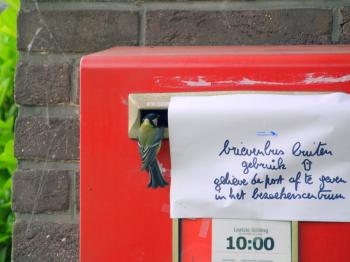 brievenbus buiten
gebruik
gelieve de post af te geven
in het bezoekerscentrum
Laatste lichting
10:00